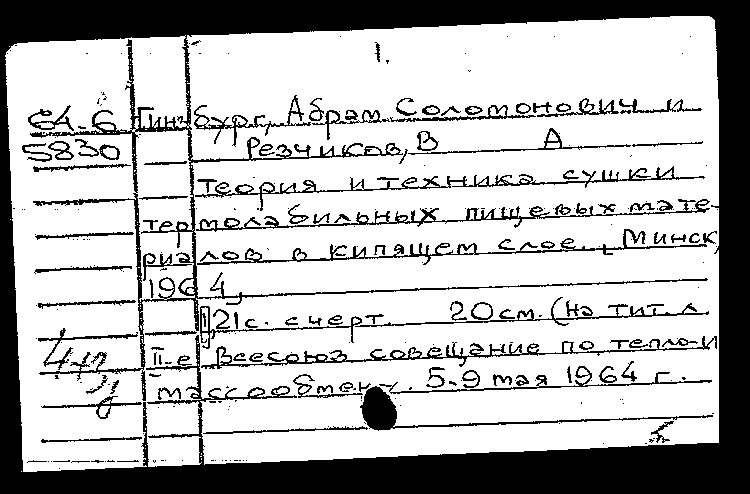 1.
64-6 Гинзбург, Абрам Соломонович и
5830 Резчиков, В А
Теория и техника сушки
термолабильных пищевых мате-
риалов в кипящем слое. Минск,
1964,
21с. с черт. 20см. (На тит. л.
II-е Всесоюз совещание по тепло-и
массообмену. 5-9 мая 1964 г.